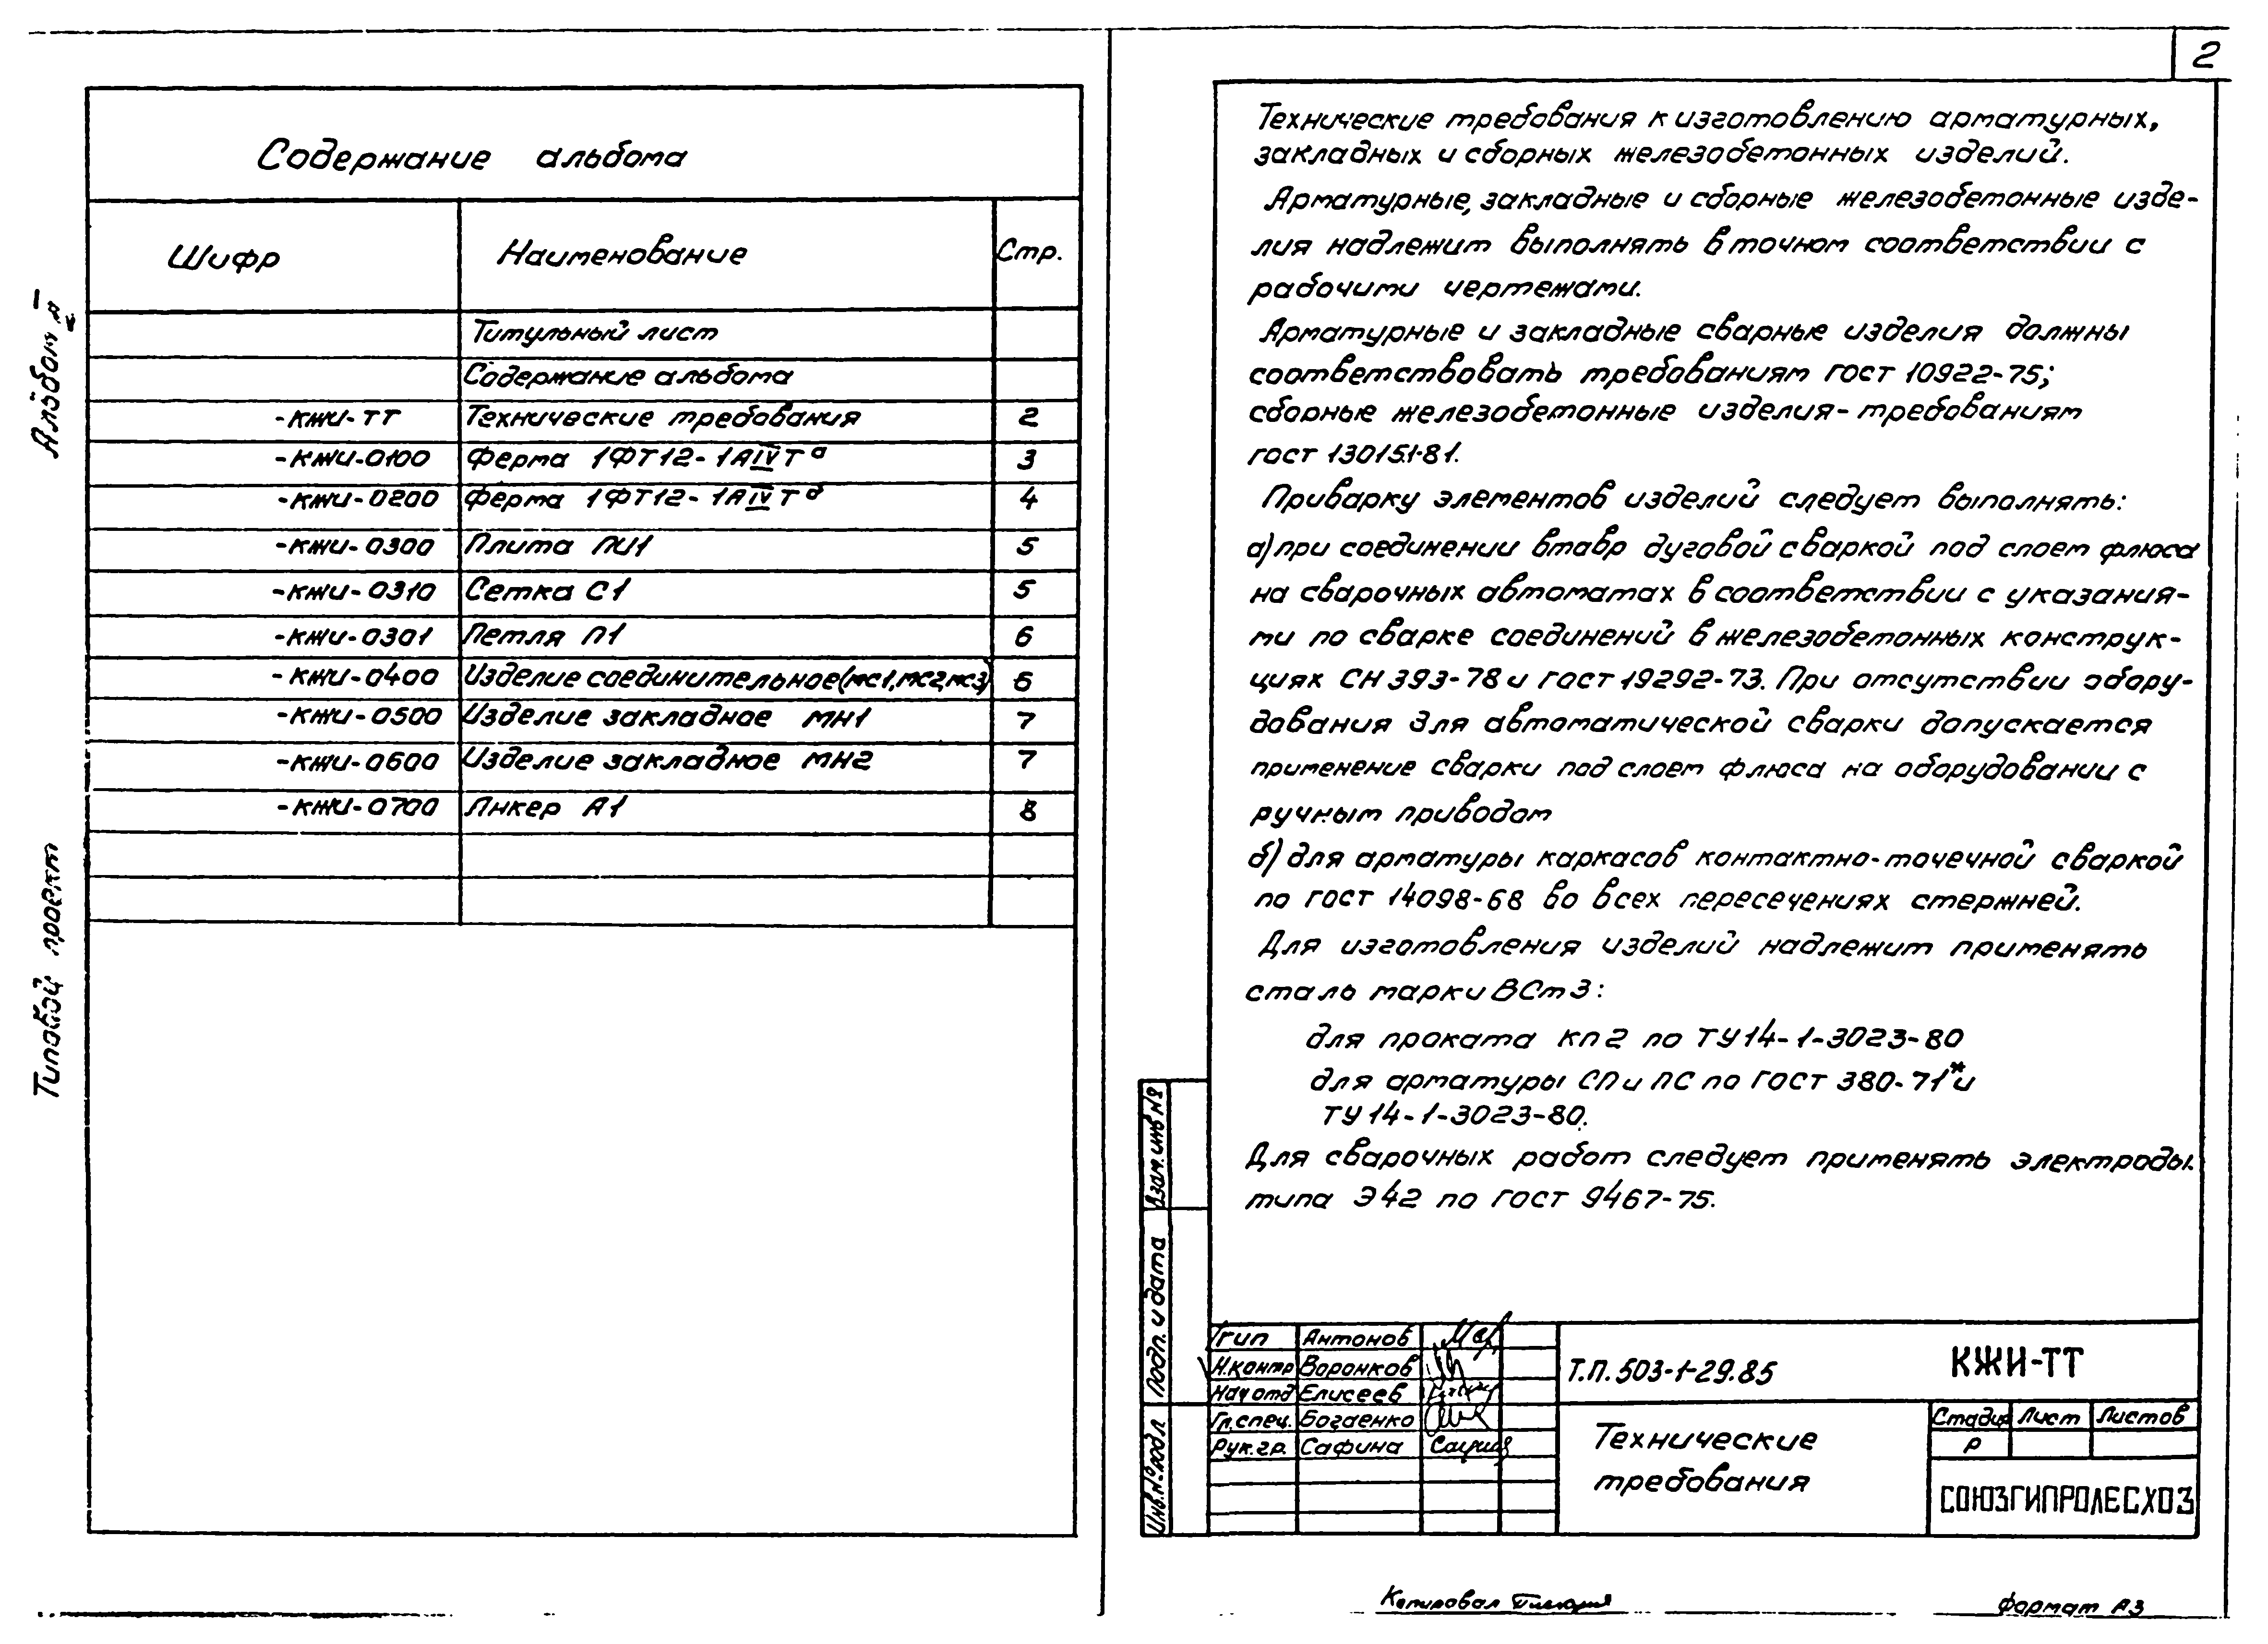 2
Содержание альбома
Шифр Наименование Стр.
Титульный лист
Содержание альбома
-КЖИ-ТТ Технические требования 2
-КЖИ-0100 Ферма 1ФТ12-1АIVТа 3
-КЖИ-0200 Ферма 1ФТ12-1АIVТб 4
-КЖИ-0300 Плита ПИ1 5
-КЖИ-0310 Сетка С1 5
-КЖИ-0301 Петля П1 6
-КЖИ-0400 Изделие соединительное (мс1, мс2, мс3) 6
-КЖИ-0500 Изделие закладное МН1 7
-КЖИ-0600 Изделие закладное МН2 7
-КЖИ-0700 Анкер А1 8
Альбом
Типовой проект
Технические требования к изготовлению арматурных,
закладных и сборных железобетонных изделий.
Арматурные, закладные и сборные железобетонные изде-
лия надлежит выполнять в точном соответствии с
рабочими чертежами.
Арматурные и закладные сварные изделия должны
соответствовать требованиям ГОСТ 10922-75;
сборные железобетонные изделия - требованиям
ГОСТ 13015.1-81.
Приварку элементов изделий следует выполнять:
а) при соединении втавр дуговой сваркой под слоем флюса
на сварочных автоматах в соответствии с указания-
ми по сварке соединений в железобетонных конструк-
циях СН 393-78 и ГОСТ 19292-73. При отсутствии обору-
дования для автоматической сварки допускается
применение сварки под слоем флюса на оборудовании с
ручным приводом
б) для арматуры каркасов контактно-точечной сваркой
по ГОСТ 14098-68 во всех пересечениях стержней.
Для изготовления изделий надлежит применять
сталь марки ВСт3:
для проката кп2 по ТУ14-1-3023-80
для арматуры СП и ПС по ГОСТ 380-71* и
ТУ14-1-3023-80.
Для сварочных работ следует применять электроды
типа Э42 по ГОСТ 9467-75.
Взам. инв №
Подп. и дата
Инв. № подл
ГИП Антонов
Н.контр Воронков
Нач отд Елисеев
Гл.спец. Богаенко
Рук.гр. Сафина
Т.П. 503-1-29.85 КЖИ-ТТ
Технические
требования
Стадия Лист Листов
Р
СОЮЗГИПРОЛЕСХОЗ
Копировал
Формат А3